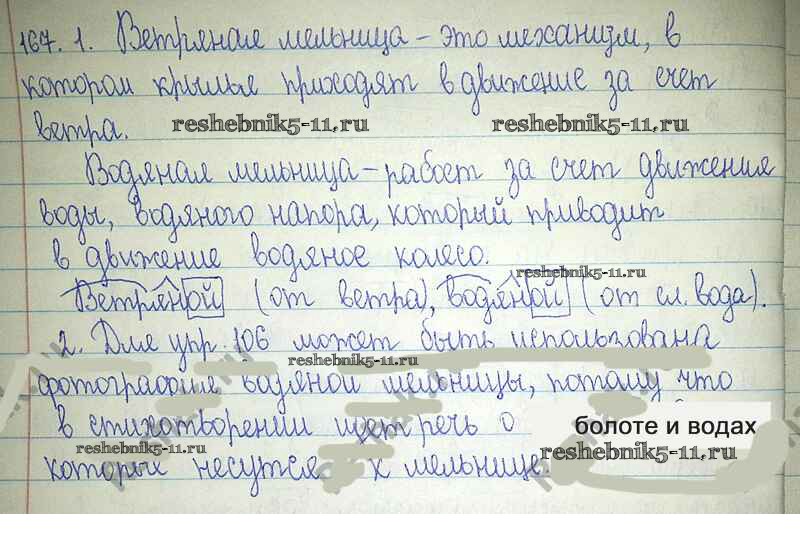 167. 1. Ветряная мельница - это механизм, в
котором крылья приходят в движение за счет
ветра.
reshebnik5-11.ru reshebnik5-11.ru
Водяная мельница - рабоет за счет движения
воды, водяного напора, который приводит
в движение водяное колесо.
reshebnik5-11.ru
Ветряной (от ветра), водяной (от сл. вода).
2. Для упр. 106 может быть использована
reshebnik5-11.ru
фотография водяной мельницы, потому что
в стихотворении идет речь о болоте и водах
reshebnik5-11.ru reshebnik5-11.ru
которых несутся к мельнице.